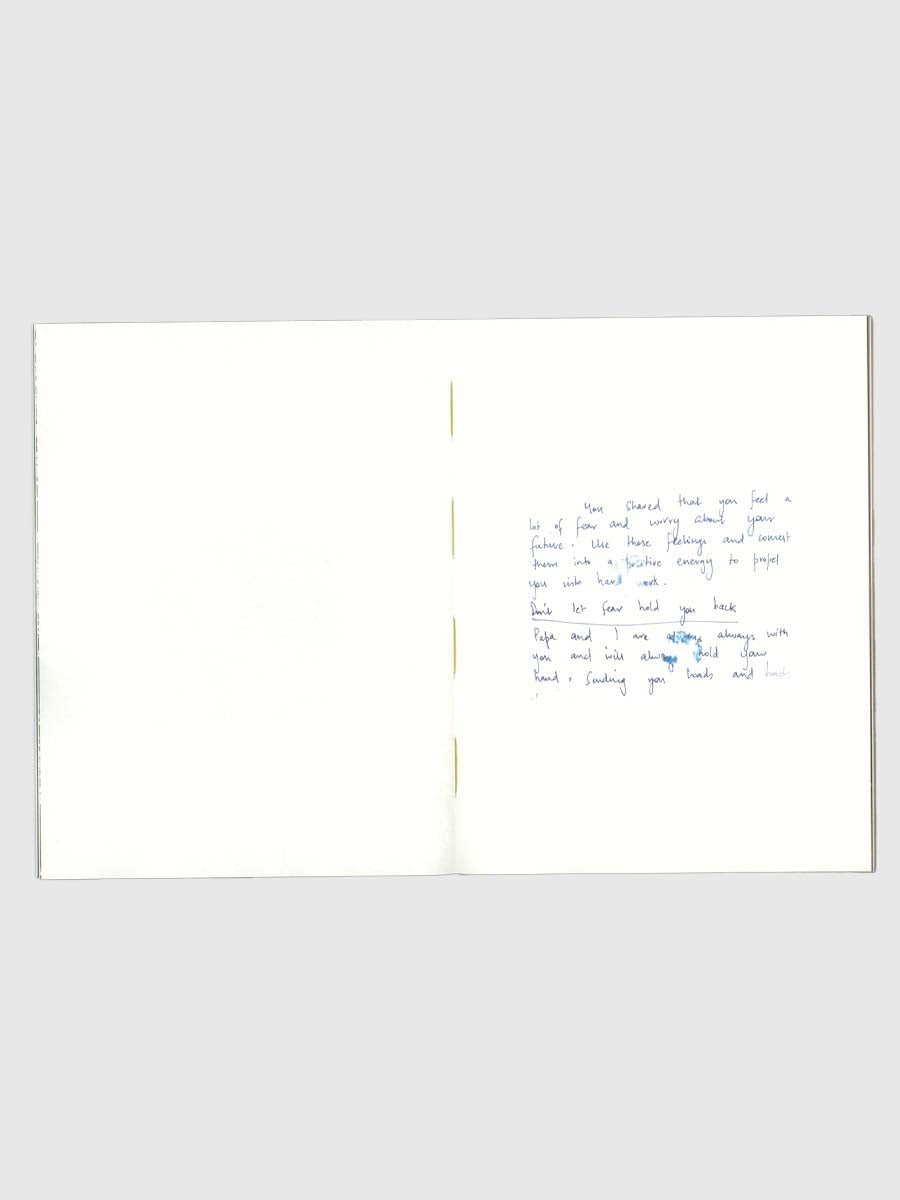 You shared that you feel a
lot of fear and worry about your
future. Use these feelings and convert
them into a positive energy to propel
you into hard work.
Don't let fear hold you back
Papa and I are always with
you and will always hold your
hand. Sending you loads and loads